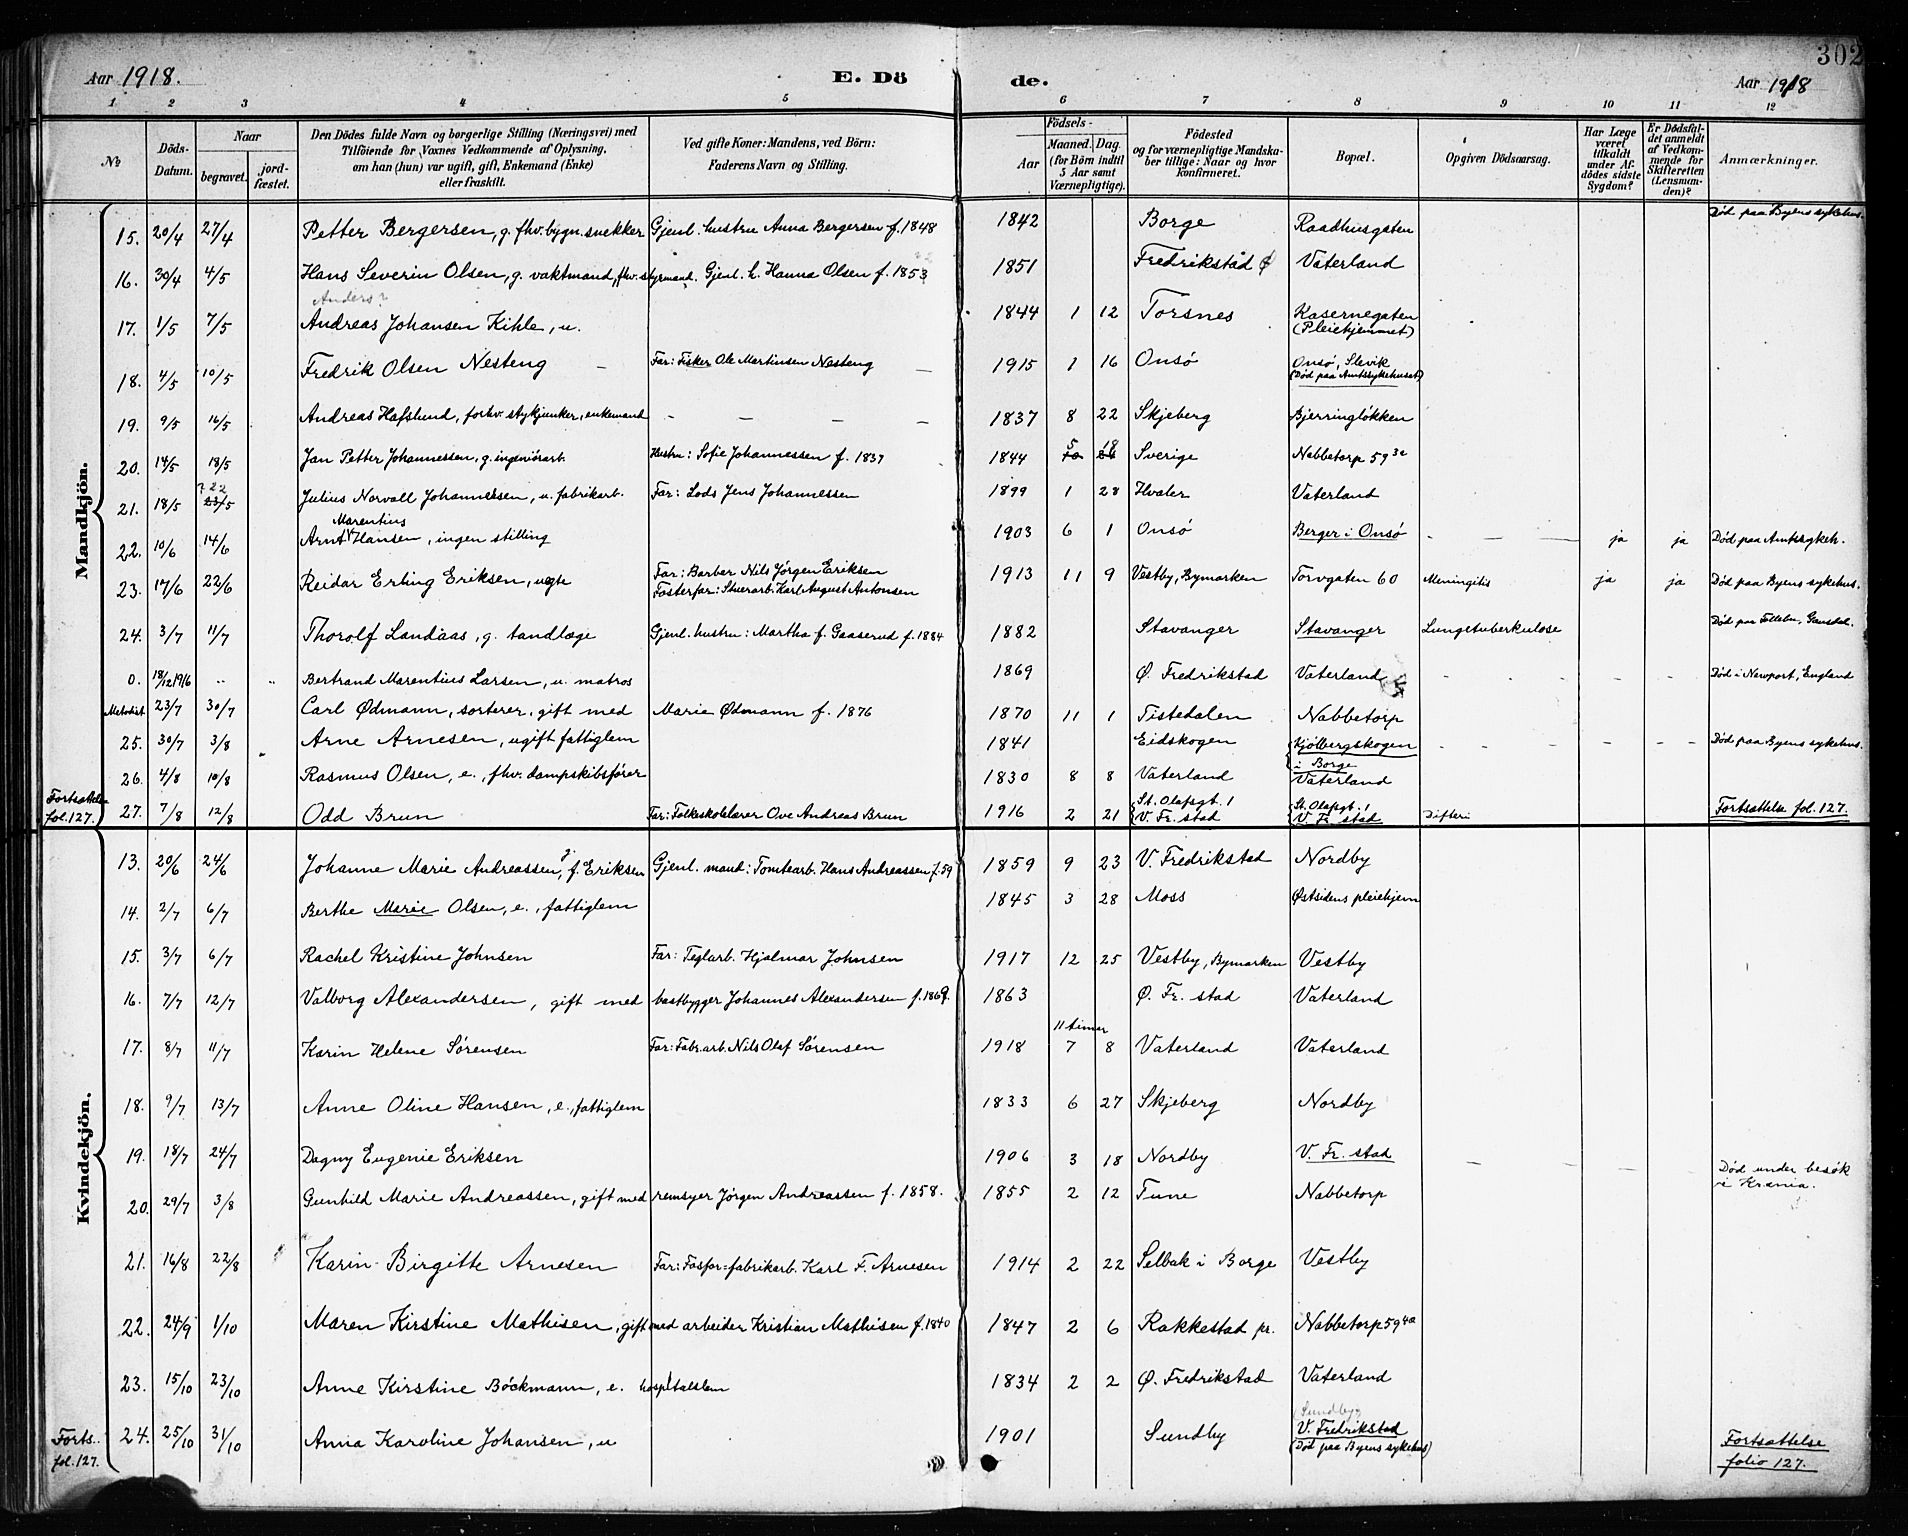 302
Aar 1918. E. Dö de. Aar 1918
1 2 3 4 5 6 7 8 9 10 11 12
No
Döds-Datum.
Naar
begravet. jord-fæstet.
Den Dödes fulde Navn og borgerlige Stilling (Næringsvei) med
Tilföiende for Voxnes Vedkommende af Oplysning,
om han (hun) var ugift, gift, Enkemand (Enke)
eller fraskilt.
Ved gifte Koner: Mandens, ved Börn:
Faderens Navn og Stilling.
Födsels-
Aar
Maaned. Dag.
(for Börn indtil
5 Aar samt
Værnepligtige).
Födested
og for værnepligtige Mandska-
ber tillige: Naar og hvor
konfirmeret.
Bopæl.
Opgiven Dödsaarsag.
Har Læge
været
tilkaldt
under Af-
dödes sidste
Sygdom?
Er Dödsfal-
det anmeldt
af Vedkom-
mende for
Skifteretten
(Lensman-
den)?
Anmærkninger.
Mandkjön.
15. 20/4 27/4 Petter Bergersen, g. fhv. bygn. snekker Gjenl. hustru Anna Bergersen f. 1848 1842 Borge Raadhusgaten Död paa Byens sykehus.
16. 30/4 4/5 Hans Severin Olsen, g. vaktmand, fhv. styrmand. Gjenl. h. Hanna Olsen f. 1853 1851 Fredrikstad Ø Vaterland
Anders?
17. 1/5 7/5 Andreas Johansen Kihle, u. 1844 1 12 Torsnes Kasernegaten
(Pleiehjemmet)
18. 4/5 10/5 Fredrik Olsen Nesteng – Far: Fisker Ole Martinsen Nesteng – 1915 1 16 Onsö Onsö, Slevik
(Död paa Amtssykehuset)
19. 9/5 16/5 Andreas Hafslund, forhv. stykjunker, enkemand – – – – 1837 8 22 Skjeberg Bjerringlökken
5 18
20. 14/5 18/5 Jan Petter Johannessen, g. ingeniörarb. Hustru: Sofie Johannessen f. 1837 1844 Sverige Nabbetorp 59 3a
? 22
21. 18/5 23/5 Julius Norvall Johannessen, u. fabrikarb. Far: Lods Jens Johannessen 1899 1 28 Hvaler Vaterland
Marentius
22. 10/6 14/6 Arnt Hansen, ingen stilling 1903 6 1 Onsö Berger i Onsö – – – ja ja Död paa Amtssykeh.
23. 17/6 22/6 Reidar Erling Eriksen, uegte Far: Barber Nils Jörgen Eriksen
Fosterfar: Stuerarb. Karl August Antonsen 1913 11 9 Vestby, Bymarken Torvgaten 60 Meningitis ja ja Död paa Byens sykehus.
24. 3/7 11/7 Thorolf Landaas, g. tandlæge Gjenl. hustru: Martha f. Gaaserud f. 1884 1882 Stavanger Stavanger Lungetuberkulose Död paa Follebu, Gausdal.
0. 18/12 1916 .. .. Bertrand Marentius Larsen, u. matros 1869 Ø. Fredrikstad Vaterland - - - - Död i Newport, England
Metodist 23/7 30/7 Carl Ødmann, sorterer, gift med Marie Ødmann f. 1876 1870 11 1 Tistedalen Nabbetorp
25. 30/7 3/8 Arne Arnesen, ugift fattiglem 1841 Eidskogen Kjölbergskogen
i Borge – – – – – Död paa Byens sykehus.
26. 4/8 10/8 Rasmus Olsen, e., fhv. dampskibsförer 1830 8 8 Vaterland Vaterland
Fortsættelse
fol. 127.
27. 7/8 12/8 Odd Brun Far: Folkeskolelærer Ove Andreas Brun 1916 2 21 St. Olafsgt. 1
V. Fr. stad St. Olafsgt. 1
V. Fr. stad Difteri Fortsættelse fol. 127.
Kvindekjön.
13. 20/6 24/6 Johanne Marie Andreassen, g. f. Eriksen Gjenl. mand: Tomtearb. Hans Andreassen f. 59 1859 9 23 V. Fredrikstad Nordby
14. 2/7 6/7 Berthe Marie Olsen, e., fattiglem 1845 3 28 Moss Østsidens pleiehjem
15. 3/7 6/7 Rachel Kristine Johnsen Far: Teglarb. Hjalmar Johnsen 1917 12 25 Vestby, Bymarken Vestby
16. 7/7 12/7 Valborg Alexandersen, gift med baatbygger Johannes Alexandersen f. 1869. 1863 Ø. Fr. stad Vaterland
11 timer
17. 8/7 11/7 Karin Helene Sörensen Far: Fabr. arb. Nils Olaf Sörensen 1918 7 8 Vaterland Vaterland
18. 9/7 13/7 Anne Oline Hansen, e., fattiglem 1833 6 27 Skjeberg Nordby
19. 18/7 24/7 Dagny Eugenie Eriksen 1906 3 18 Nordby V. Fr. stad – – – – Död under besök
i Krania.
20. 29/7 3/8 Gunhild Marie Andreassen, gift med remsyer Jörgen Andreassen f. 1858. 1855 2 12 Tune Nabbetorp
21. 16/8 22/8 Karin Birgitte Arnesen Far: Fosfor=fabrikarb. Karl F. Arnesen 1914 2 22 Selbak i Borge Vestby
22. 24/9 1/10 Maren Kirstine Mathisen, gift med arbeider Kristian Mathisen f. 1840 1847 2 6 Rakkestad pr. Nabbetorp 59 4a
23. 15/10 23/10 Anne Kirstine Böckmann, e. hospitalslem 1834 2 2 Ø. Fredrikstad Vaterland
Sundby
Forts.
fol. 127.
24. 25/10 31/10 Anna Karoline Johansen, u 1901 Sundby V. Fredrikstad
(Död paa Byens sykehus)
Fortsættelse
folio 127.